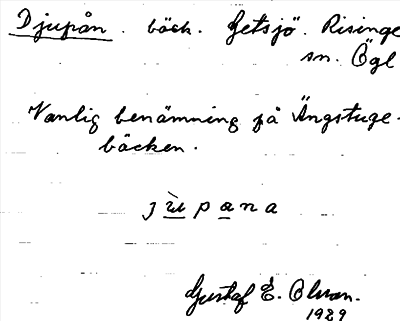 Djupån. bäck. Getsjö. Risinge
sn. Ögl
Vanlig benämning på Ängstuge-
bäcken.
jùpana
Gustaf E. Olsson.
1929